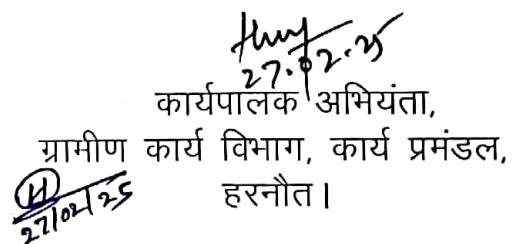 27.02.25
कार्यपालक अभियंता,
ग्रामीण कार्य विभाग, कार्य प्रमंडल,
हरनौत।
27/02/25